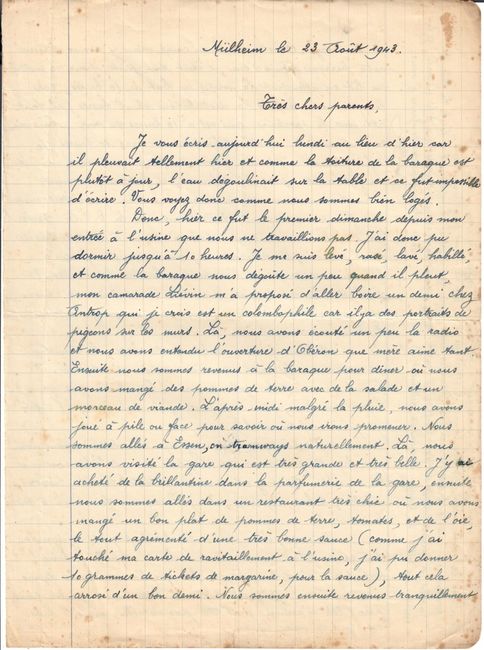 Mülheim le 23 Août 1943.
Très chers parents,
Je vous écris aujourd'hui lundi au lieu d'hier car
il pleuvait tellement hier et comme la toiture de la baraque est
plutôt à jour, l'eau dégoulinait sur la table et ce fut impossible
d'écrire. Vous voyez donc comme nous sommes bien logés.
Donc, hier ce fut le premier dimanche depuis mon
entrée à l'usine que nous ne travaillions pas. J'ai donc pu
dormir jusqu'à 10 heures. Je me suis levé, rasé, lavé, habillé,
et comme la baraque nous dégoûte un peu quand il pleut,
mon camarade Liévin m'a proposé d'aller boire un demi chez
Antrop qui je crois est un colombophile car il y a des portraits de
pigeons sur les murs. Là, nous avons écouté un peu la radio
et nous avons entendu l'ouverture d'Obéron que mère aime tant.
Ensuite nous sommes revenus à la baraque pour dîner où nous
avons mangé des pommes de terre avec de la salade et un
morceau de viande. L'après-midi malgré la pluie, nous avons
joué à pile ou face pour savoir où nous irons promener. Nous
sommes allés à Essen, en tramways naturellement. Là, nous
avons visité la gare qui est très grande et très belle. J'y ai
acheté de la brillantine dans la parfumerie de la gare, ensuite
nous sommes allés dans un restaurant très chic où nous avons
mangé un bon plat de pommes de terre, tomates, et de l'oie,
le tout agrémenté d'une très bonne sauce (comme j'ai
touché ma carte de ravitaillement à l'usine, j'ai pu donner
10 grammes de tickets de margarine, pour la sauce), tout cela
arrosé d'un bon demi. Nous sommes ensuite revenus tranquillement